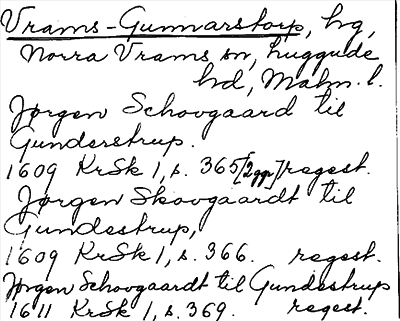 Vrams-Gunnarstorp, hg,
Norra Vrams sn, Luggude
hd, Malm. l.
Jørgen Schovgaard til
Gunderstrup.
1609 KrSk 1, s. 365 [2 ggr] regest.
Jørgen Skovgaardt til
Gundestrup,
1609 KrSk 1, s. 366. regest.
Jørgen Schovgaardt til Gundestrup
1611 KrSk 1, s. 369. regest.